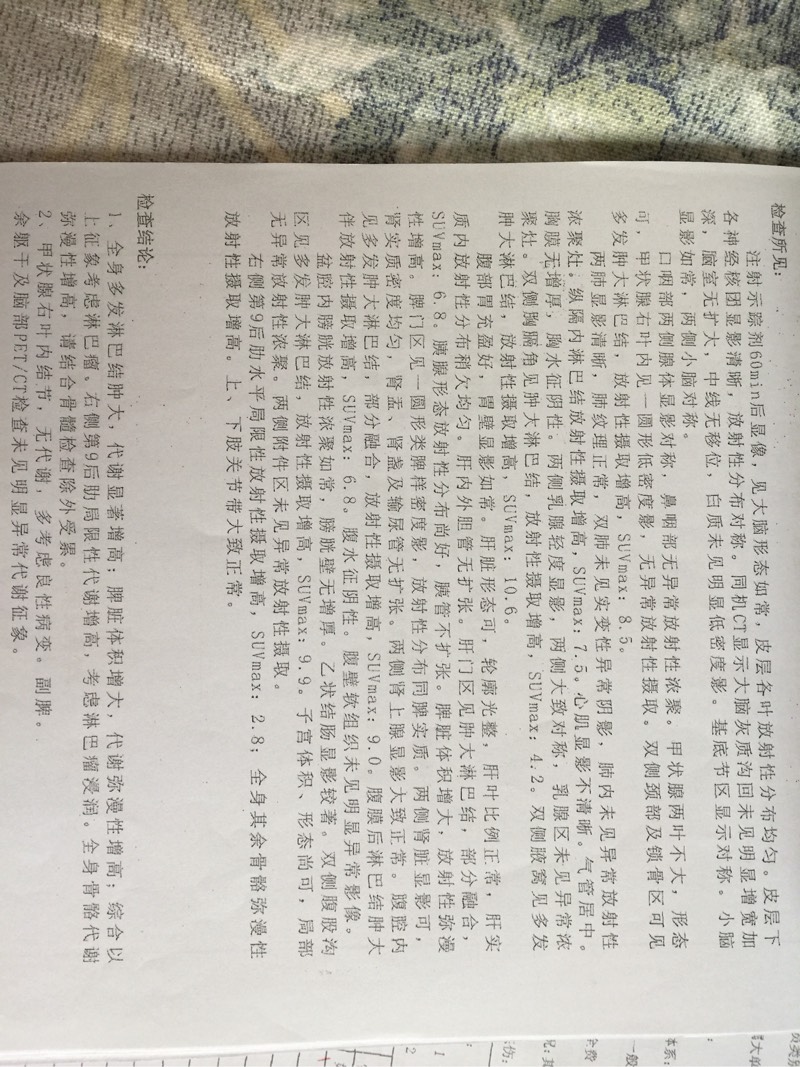 检查所见：
注射示踪剂60min后显像，见大脑形态如常，皮层各叶放射性分布均匀。皮层下
各神经核团显影清晰，放射性分布对称。同机CT显示大脑灰质沟回未见明显增宽加
深，脑室无扩大，中线无移位，白质未见明显低密度影。基底节区显示对称。小脑
显影如常，两侧小脑对称。
口咽部两侧腺体显影对称，鼻咽部无异常放射性浓聚。甲状腺两叶不大，形态
可，甲状腺右叶内见一圆形低密度影，无异常放射性摄取。双侧颈部及锁骨区可见
多发肿大淋巴结，放射性摄取增高，SUVmax：8.5。
两肺显影清晰，肺纹理正常，双肺未见实变性异常阴影，肺内未见异常放射性
浓聚灶。纵隔内淋巴结放射性摄取增高，SUVmax：7.5。心肌显影不清晰。气管居中。
胸膜无增厚，胸水征阴性。两侧乳腺轻度显影，两侧大致对称，乳腺区未见异常浓
聚灶。双侧胸膈角见肿大淋巴结，放射性摄取增高，SUVmax：4.2。双侧腋窝见多发
肿大淋巴结，放射性摄取增高，SUVmax：10.6。
腹部胃充盈好，胃壁显影如常。肝脏形态可，轮廓光整，肝叶比例正常，肝实
质内放射性分布稍欠均匀。肝内外胆管无扩张。肝门区见肿大淋巴结，部分融合，
SUVmax：6.8。胰腺形态放射性分布尚好，胰管不扩张。脾脏体积增大，放射性弥漫
性增高。脾门区见一圆形类脾样密度影，放射性分布同脾实质。两侧肾脏显影可，
肾实质密度均匀，肾盂、肾盏及输尿管无扩张。两侧肾上腺显影大致正常。腹腔内
见多发肿大淋巴结，部分融合，放射性摄取增高，SUVmax：9.0。腹膜后淋巴结肿大
伴放射性摄取增高，SUVmax：6.8。腹水征阴性。腹壁软组织未见明显异常影像。
盆腔内膀胱放射性浓聚如常，膀胱壁无增厚。乙状结肠显影较著。双侧腹股沟
区见多发肿大淋巴结，放射性摄取增高，SUVmax：9.9。子宫体积、形态尚可，局部
无异常放射性浓聚。两侧附件区未见异常放射性摄取。
右侧第9后肋水平局限性放射性摄取增高，SUVmax：2.8；全身其余骨骼弥漫性
放射性摄取增高。上、下肢关节带大致正常。
检查结论：
1、全身多发淋巴结肿大，代谢显著增高；脾脏体积增大，代谢弥漫性增高；综合以
上征象考虑淋巴瘤。右侧第9后肋局限性代谢增高，考虑淋巴瘤浸润。全身骨骼代谢
弥漫性增高，请结合骨髓检查除外受累。
2、甲状腺右叶内结节，无代谢，多考虑良性病变。副脾。
余躯干及脑部PET/CT检查未见明显异常代谢征象。